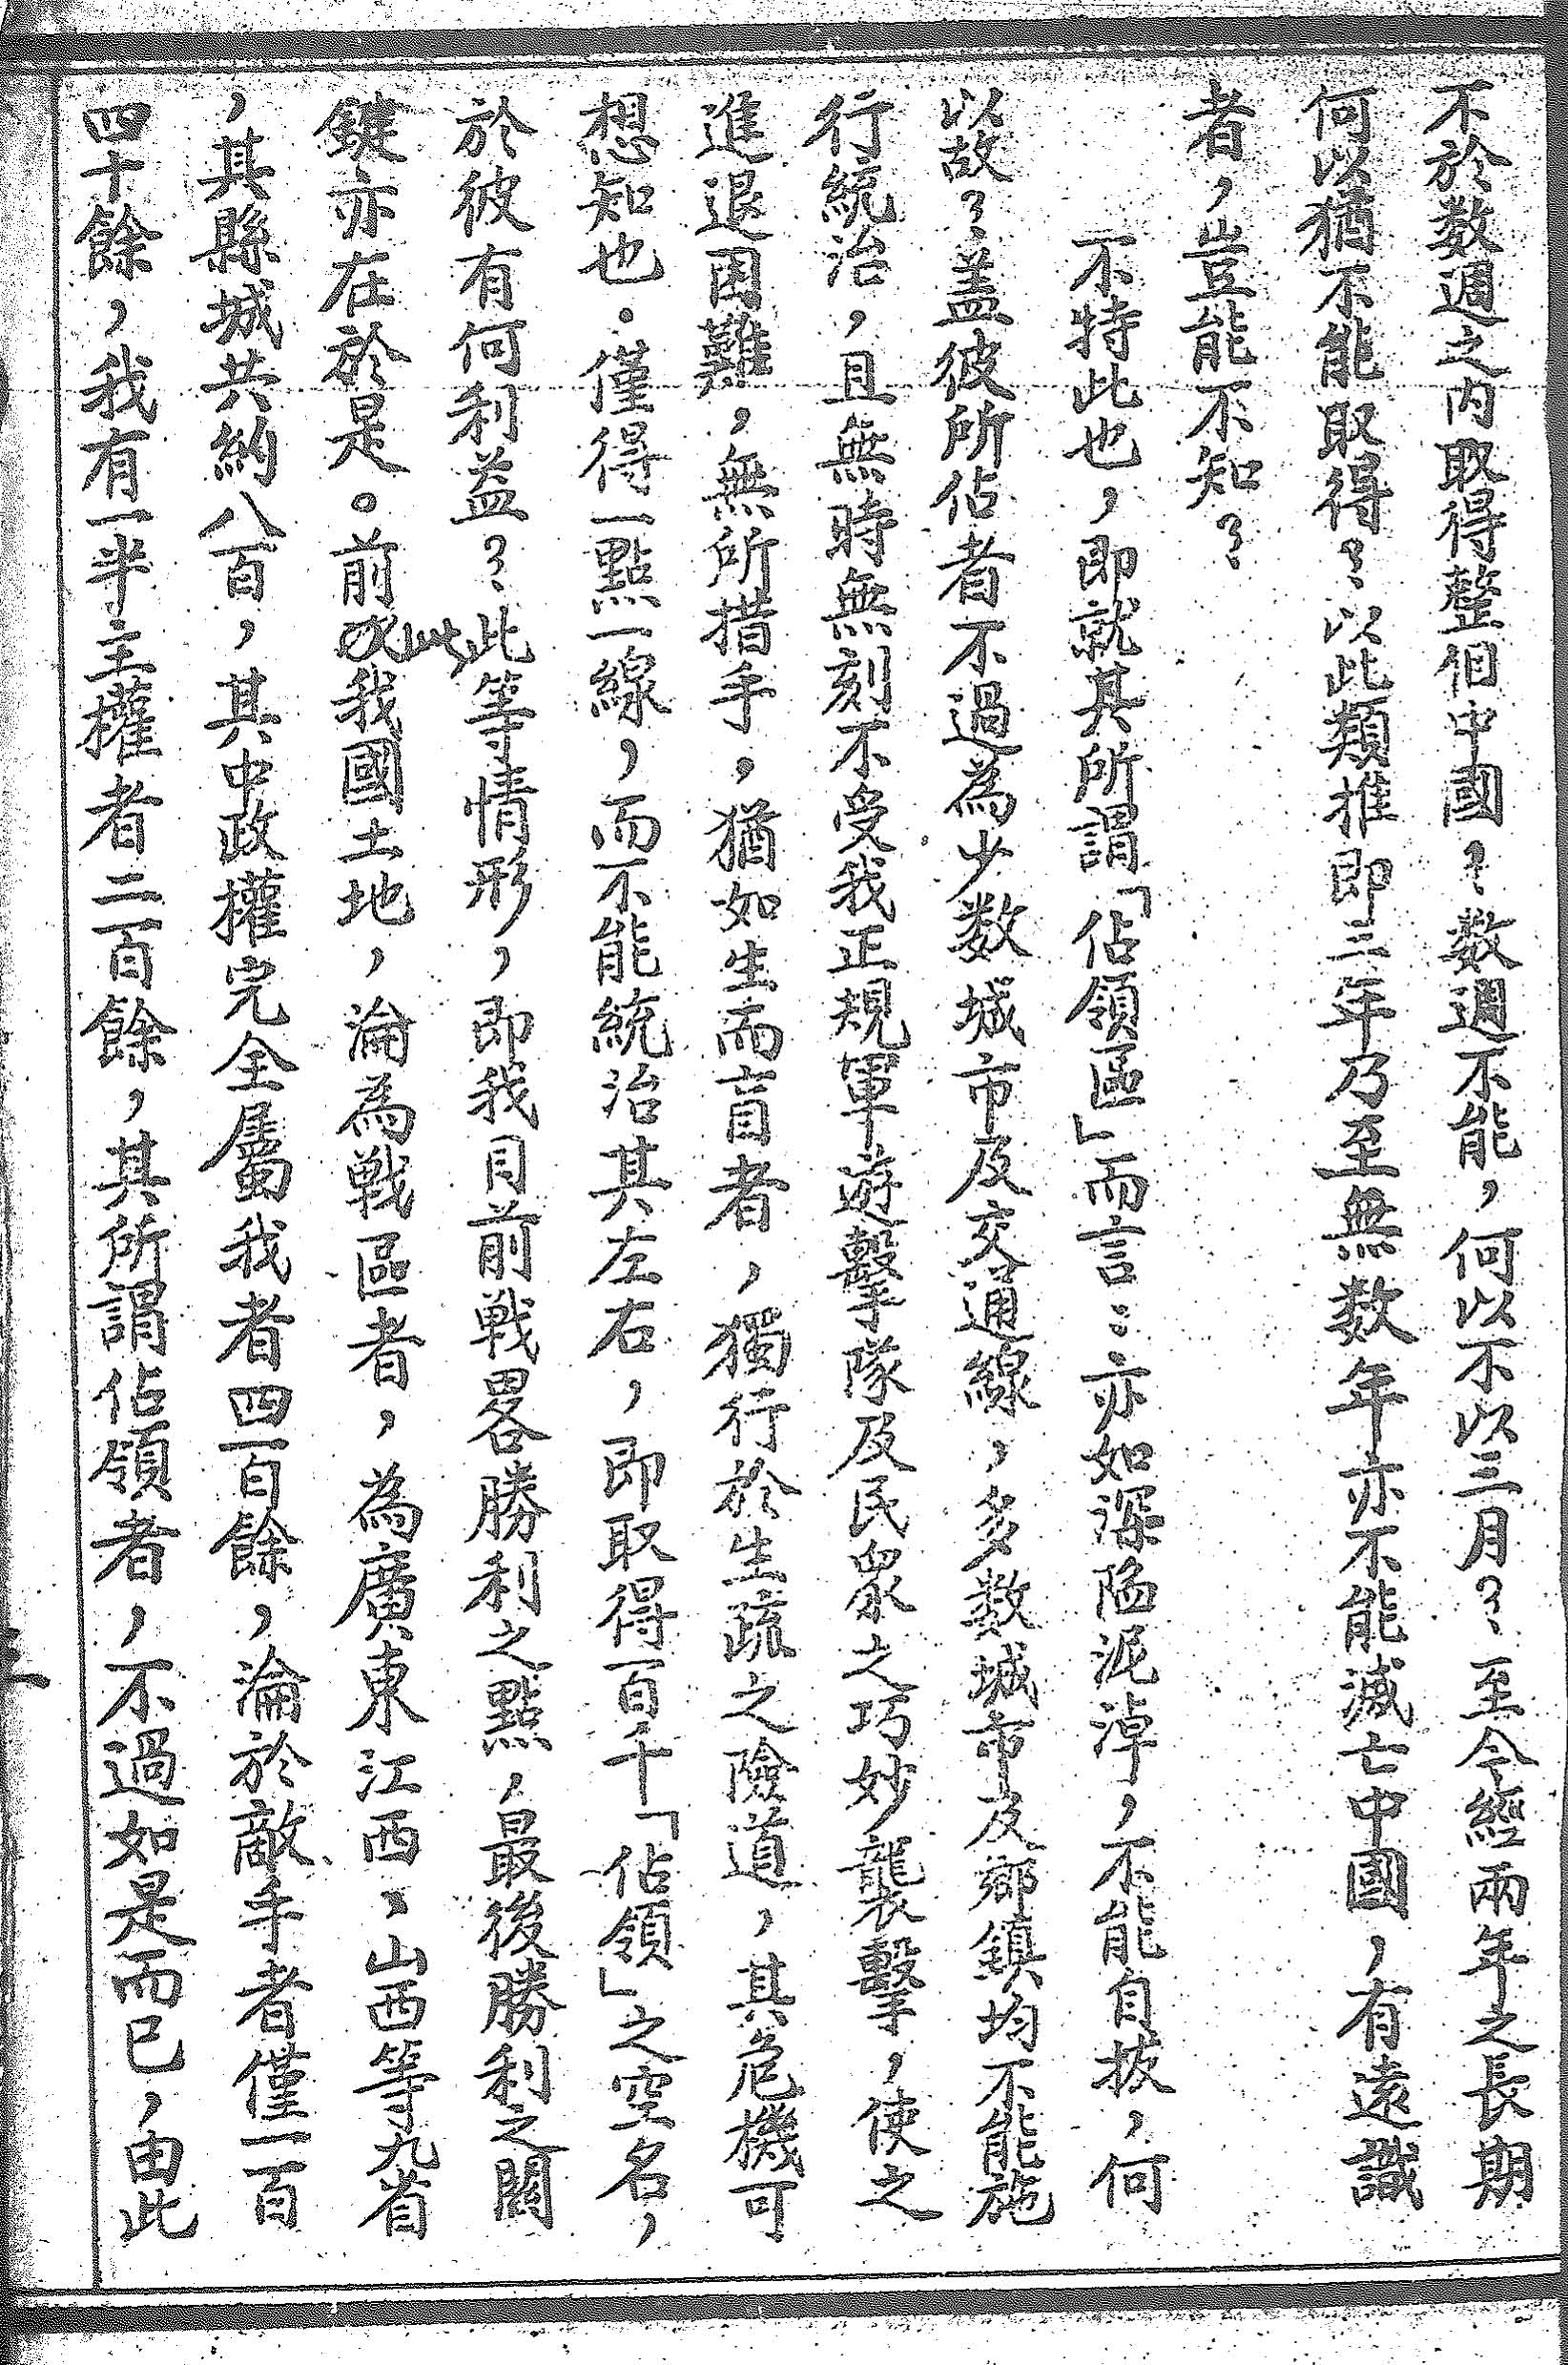 不於数週之内取得整個中國？数週不能，何以不以三月？至今經兩年之長期
何以猶不能取得？以此類推即三年乃至無数年亦不能滅亡中國，有遠識
者，豈能不知？
不特此也，即就其所謂「佔領區」而言：亦如深陷泥淖，不能自拔，何
以故？盖彼所佔者不過為少数城市及交通線，多数城市及鄉鎮均不能施
行統治，且無時無刻不受我正規軍遊擊隊及民衆之巧妙襲擊，使之
進退困難，無所措手，猶如生而盲者，獨行於生疏之險道，其危機可
想知也．僅得一點一線，而不能統治其左右，即取得百千「佔領」之空名，
於彼有何利益？此等情形，即我目前戰畧勝利之點，最後勝利之關
鍵亦在於是。前此我國土地，淪為戰區者，為廣東江西、山西等九省
，其縣城共約八百，其中政權完全屬我者四百餘，淪於敵手者僅一百
四十餘，我有一半主權者二百餘，其所謂佔領者，不過如是而已，由此